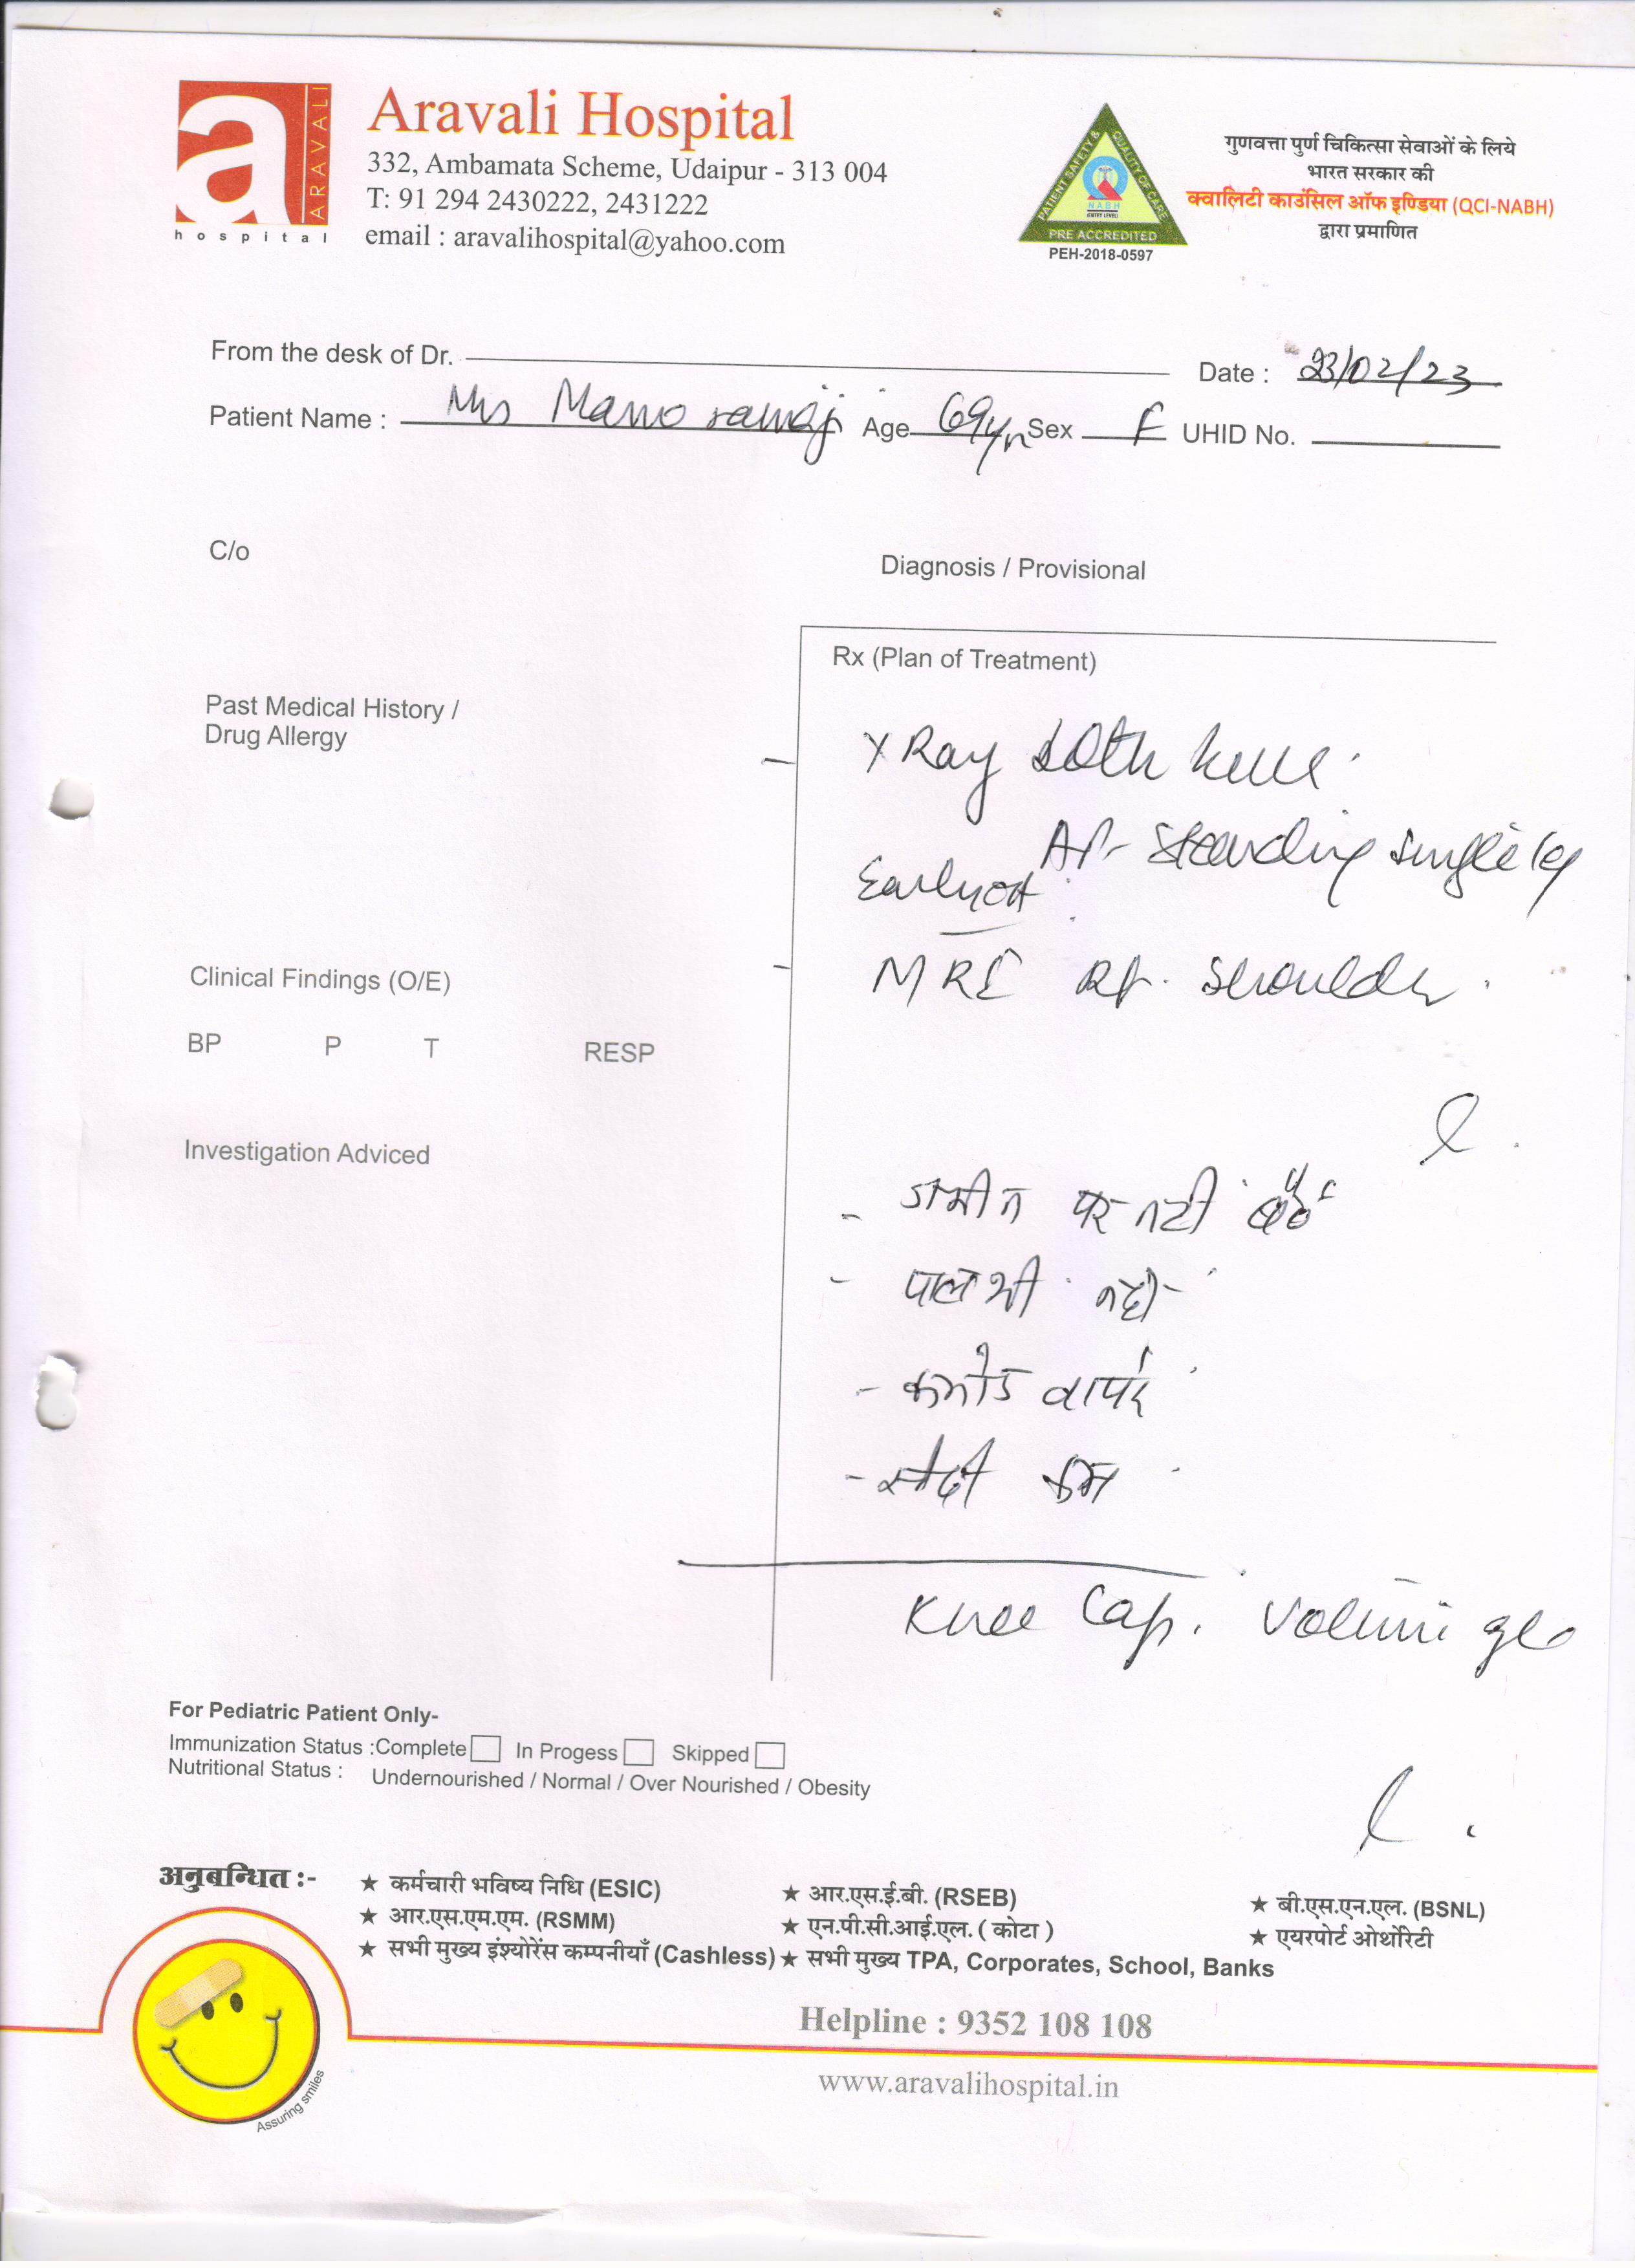 a ARAVALI
hospital
Aravali Hospital
332, Ambamata Scheme, Udaipur - 313 004
T: 91 294 2430222, 2431222
email : aravalihospital@yahoo.com
PATIENT SAFETY & QUALITY OF CARE
NABH
(ENTRY LEVEL)
PRE ACCREDITED
PEH-2018-0597
गुणवत्ता पुर्ण चिकित्सा सेवाओं के लिये
भारत सरकार की
क्वालिटी काउंसिल ऑफ इण्डिया (QCI-NABH)
द्वारा प्रमाणित
From the desk of Dr. Date : 23/02/23
Patient Name : Mrs Manoramaji Age 69yr Sex F UHID No.
C/o
Diagnosis / Provisional
Rx (Plan of Treatment)
Past Medical History /
Drug Allergy
- X Ray both knee.
AP- Standing single leg
Early OA
Clinical Findings (O/E)
- MRI Rt. shoulder.
BP P T RESP
Investigation Adviced
- जमीन पर नही बैठे
- पालथी नही
- कमोड वापरे
- सीढी कम
Knee Cap. Volini gel
For Pediatric Patient Only-
Immunization Status :Complete In Progess Skipped
Nutritional Status : Undernourished / Normal / Over Nourished / Obesity
अनुबन्धित :-
★ कर्मचारी भविष्य निधि (ESIC) ★ आर.एस.ई.बी. (RSEB) ★ बी.एस.एन.एल. (BSNL)
★ आर.एस.एम.एम. (RSMM) ★ एन.पी.सी.आई.एल. ( कोटा ) ★ एयरपोर्ट ओथोंरेटी
★ सभी मुख्य इंश्योरेंस कम्पनीयाँ (Cashless) ★ सभी मुख्य TPA, Corporates, School, Banks
Assuring smiles
Helpline : 9352 108 108
www.aravalihospital.in